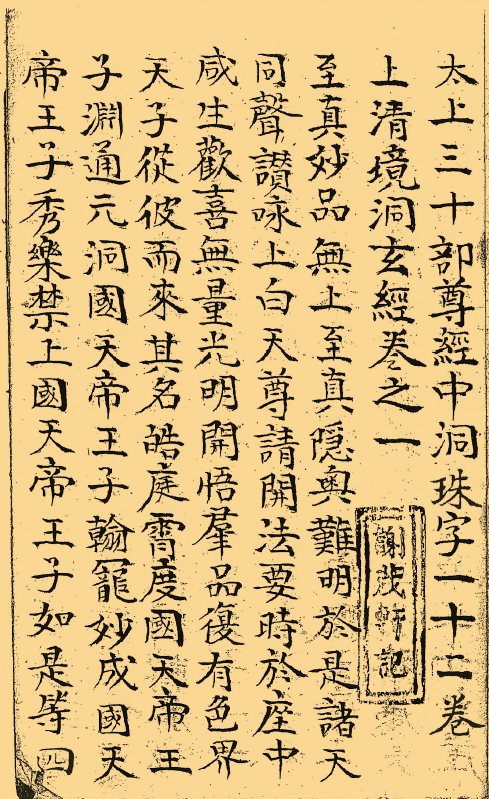 太上三十部尊經中洞珠字一十二卷
上清境洞玄經卷之一
至真妙品無上至真隠奧難明於是諸天
同聲讃咏上白天尊請開法要時於座中
咸生歡喜無量光明開悟羣品復有色界
天子從彼而來其名皓庭霄度國天帝王
子淵通元洞國天帝王子翰寵妙成國天
帝王子秀樂禁上國天帝王子如是等四